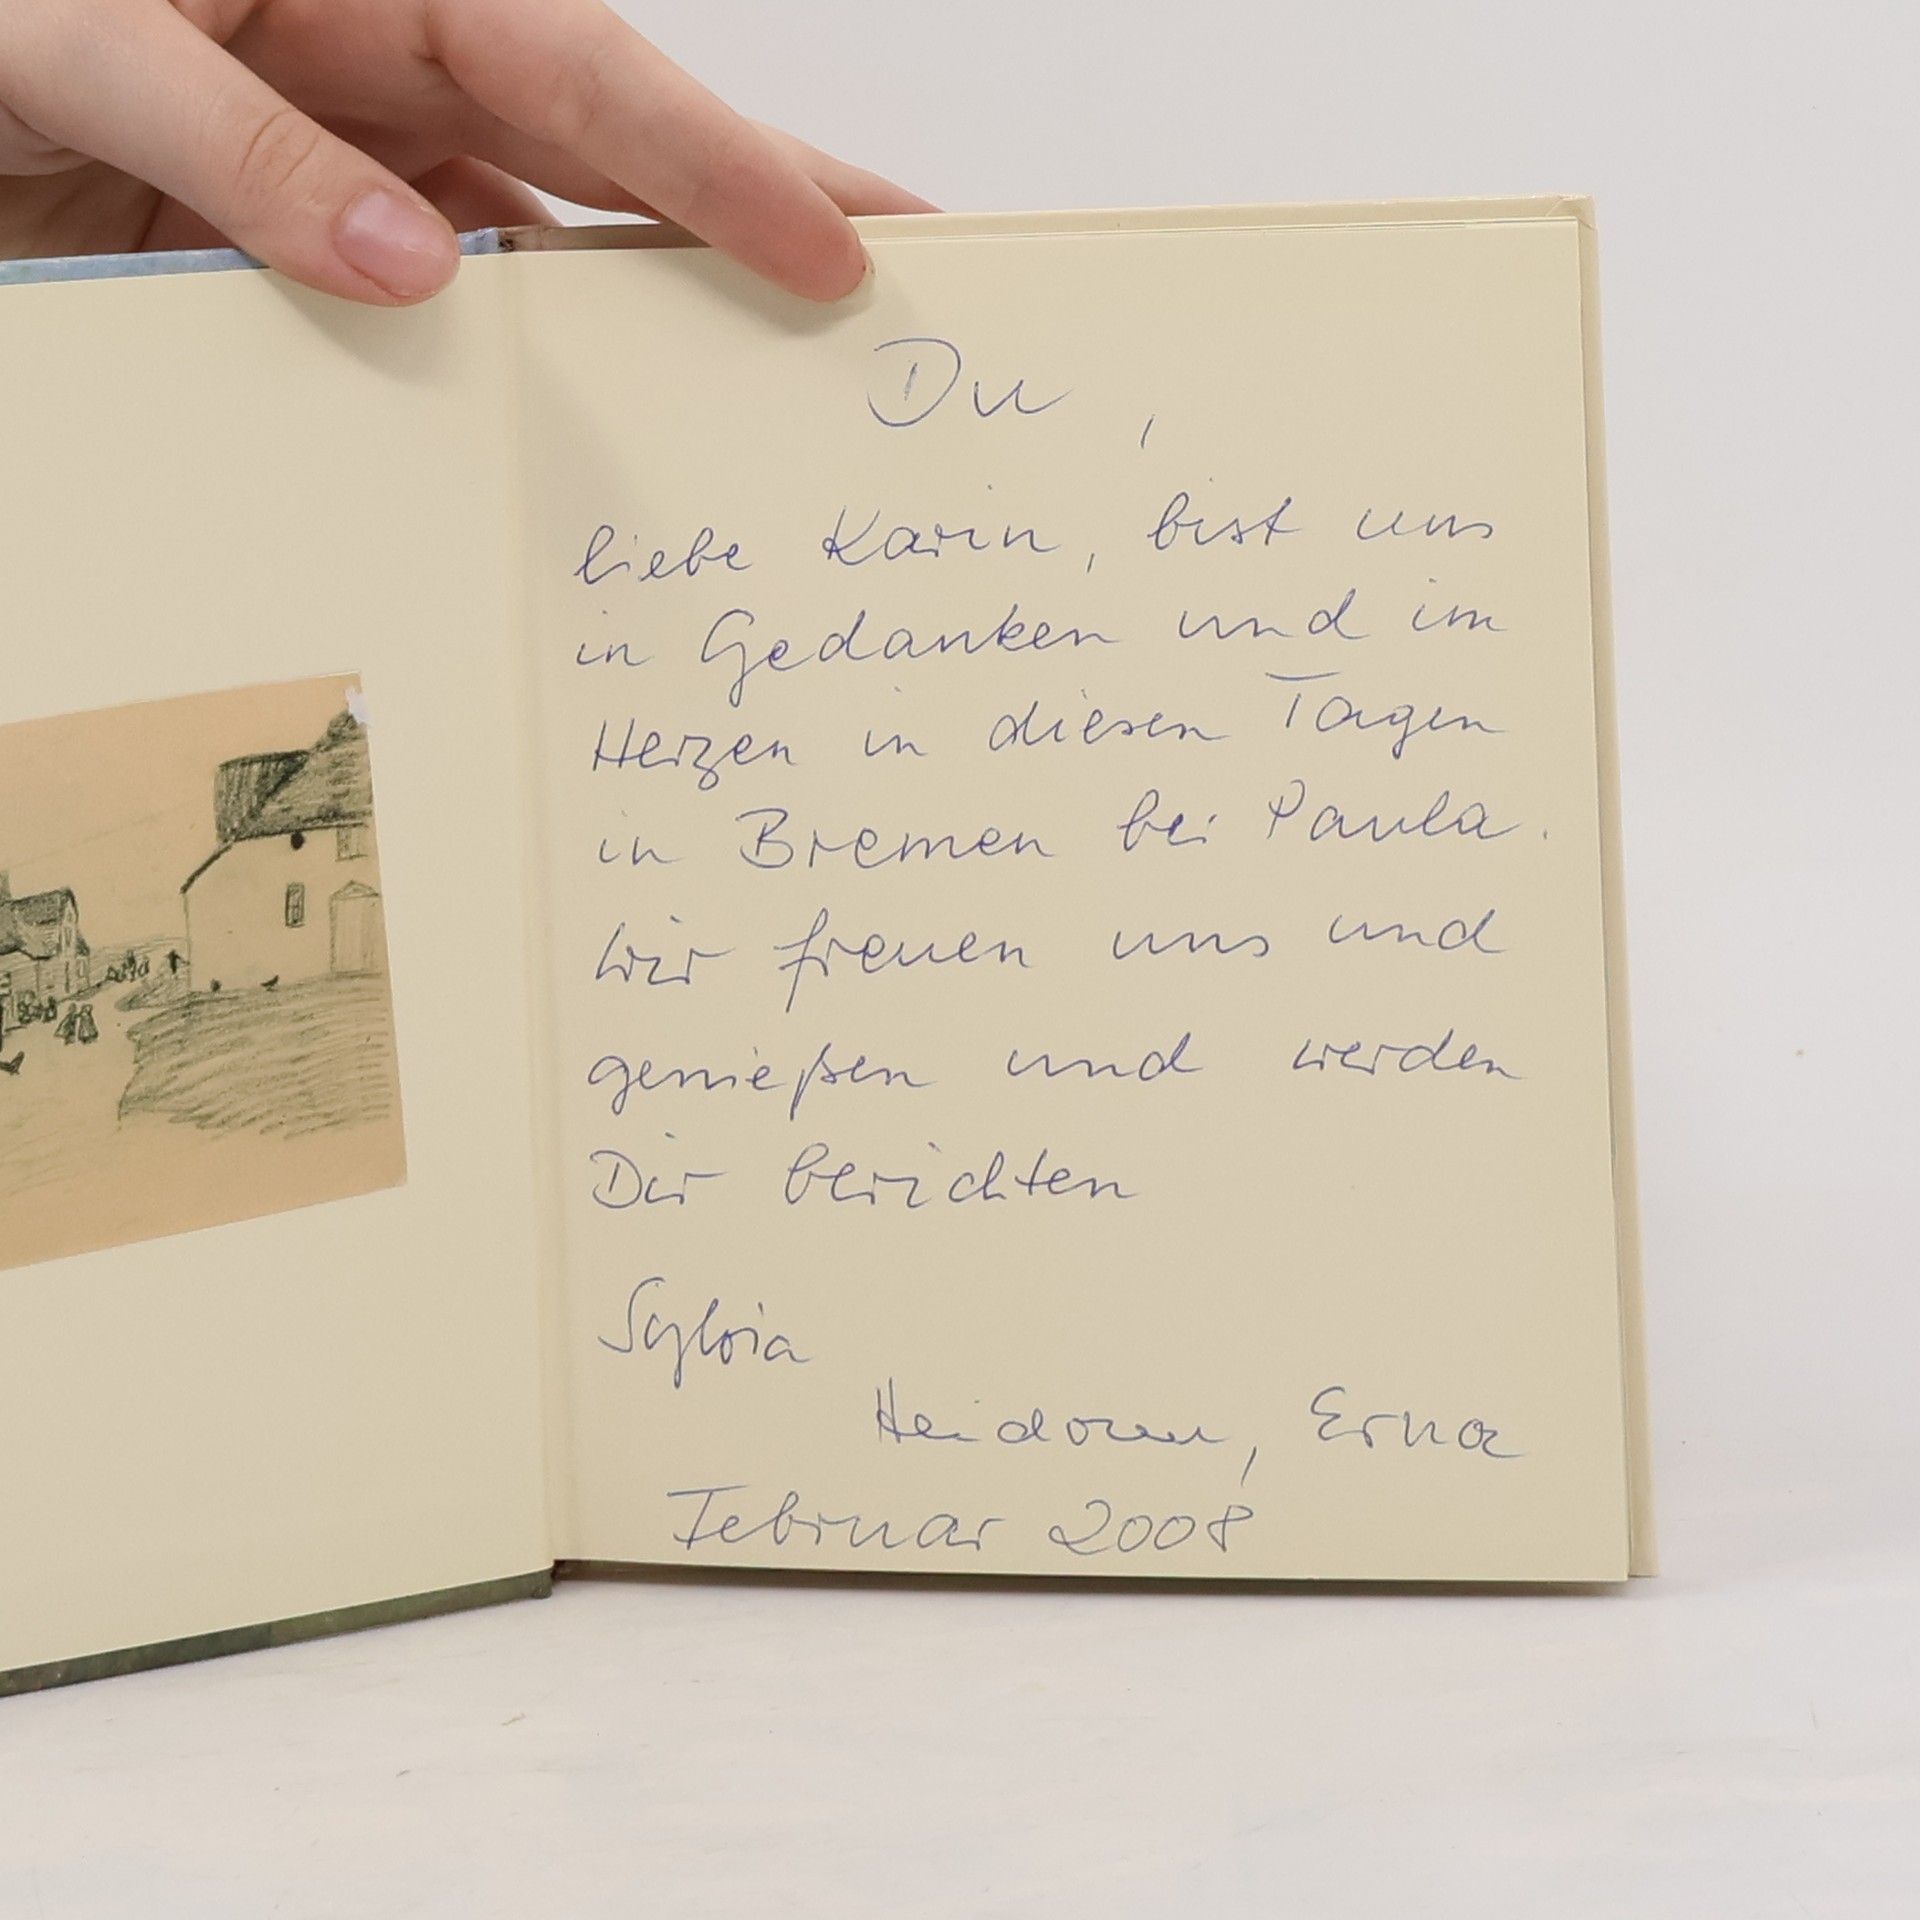 Du ,
liebe Karin, bist uns
in Gedanken und im
Herzen in diesen Tagen
in Bremen bei Paula.
Wir freuen uns und
genießen und werden
Dir berichten
Sylvia
Erna
Februar 2008